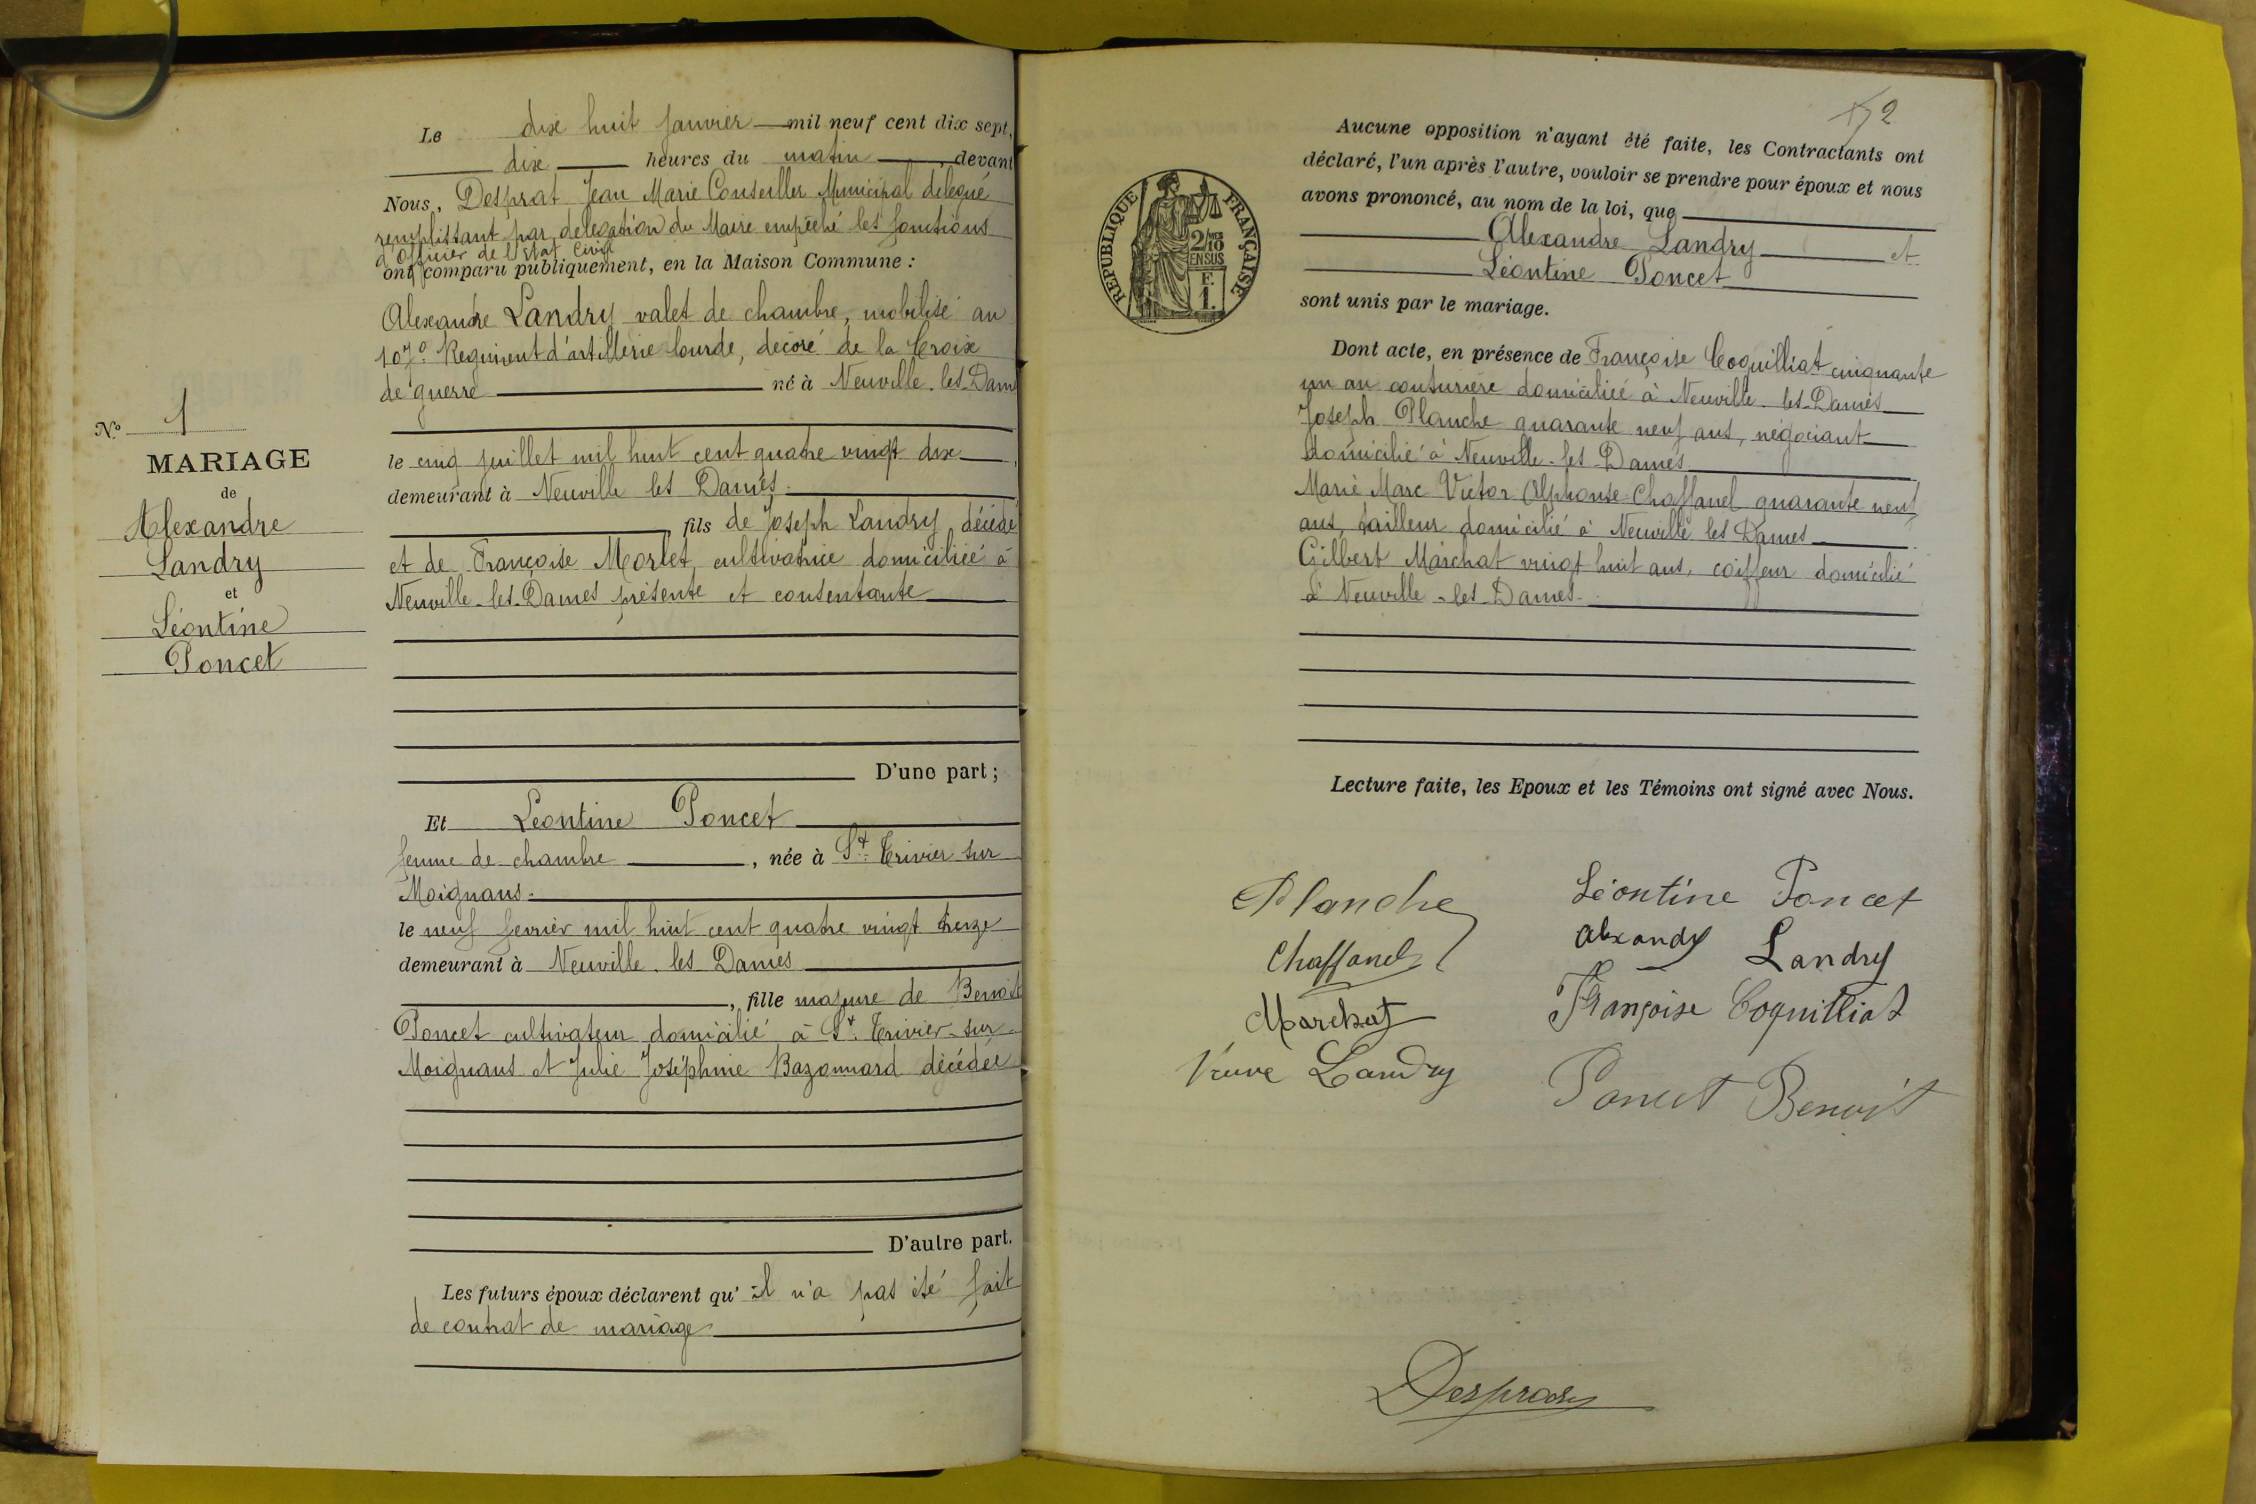 N.º 1
MARIAGE
de
Alexandre
Landry
et
Léontine
Poncet
Le dix huit janvier mil neuf cent dix sept,
dix heures du matin, devant
Nous, Desprat Jean Marie Conseiller Municipal délégué
remplissant par délégation du Maire empêché les fonctions
d'Officier de l'Etat Civil
ont comparu publiquement, en la Maison Commune :
Alexandre Landry valet de chambre, mobilisé au
107e Regiment d'artillerie lourde, décoré de la Croix
de guerre né à Neuville-les-Dames
le cinq juillet mil huit cent quatre vingt dix,
demeurant à Neuville les Dames
fils de Joseph Landry décédé
et de Françoise Morlet, cultivatrice domiciliée à
Neuville-les-Dames présente et consentante
D'une part ;
Et Léontine Poncet
femme de chambre, née à St Trivier sur
Moignans
le neuf fevrier mil huit cent quatre vingt treize
demeurant à Neuville les Dames
, fille majeure de Benoit
Poncet cultivateur domicilié à St Trivier-sur-
Moignans et Julie Joséphine Bazonnard décédée
D'autre part.
Les futurs époux déclarent qu'il n'a pas été fait
de contrat de mariage
2
RÉPUBLIQUE FRANÇAISE
2/10
EN SUS
F.
1.
Aucune opposition n'ayant été faite, les Contractants ont
déclaré, l'un après l'autre, vouloir se prendre pour époux et nous
avons prononcé, au nom de la loi, que
Alexandre Landry et
Léontine Poncet
sont unis par le mariage.
Dont acte, en présence de Françoise Coquilliat cinquante
un an couturière domiciliée à Neuville-les-Dames
Joseph Planche quarante neuf ans, négociant
domicilié à Neuville-les-Dames
Marie Marc Victor Alphonse Chaffanel quarante neuf
ans, tailleur domicilié à Neuville les Dames
Gilbert Marchat vingt huit ans, coiffeur domicilié
à Neuville-les-Dames.
Lecture faite, les Epoux et les Témoins ont signé avec Nous.
Planche Léontine Poncet
Chaffanel Alexandre Landry
Marchat Françoise Coquilliat
Veuve Landry Poncet Benoit
Desprat